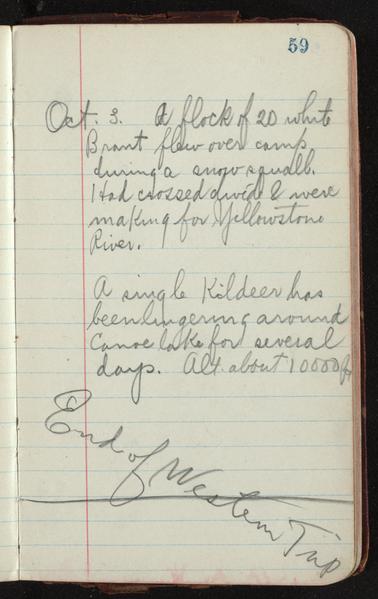 59
Oct. 3. A flock of 20 white
Brant flew over camp
during a snow squall.
Had crossed divide & were
making for Yellowstone
River.
A single Kildeer has
been lingering around
Canoe lake for several
days. Alt about 10000 ft
End of Western Trip